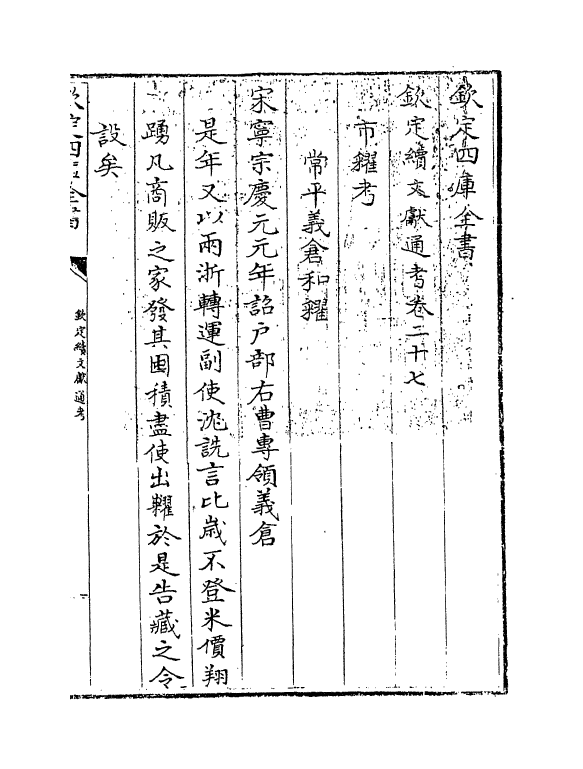 欽定四庫全書
欽定續文獻通考卷二十七
市糴考
常平義倉和糴
宋寧宗慶元元年詔户部右曹專領義倉
是年又以兩浙轉運副使沈詵言比嵗不登米價翔
踴凡商販之家發其囷積盡使出糶於是告藏之令
設矣
欽定四庫全書
欽定續文獻通考